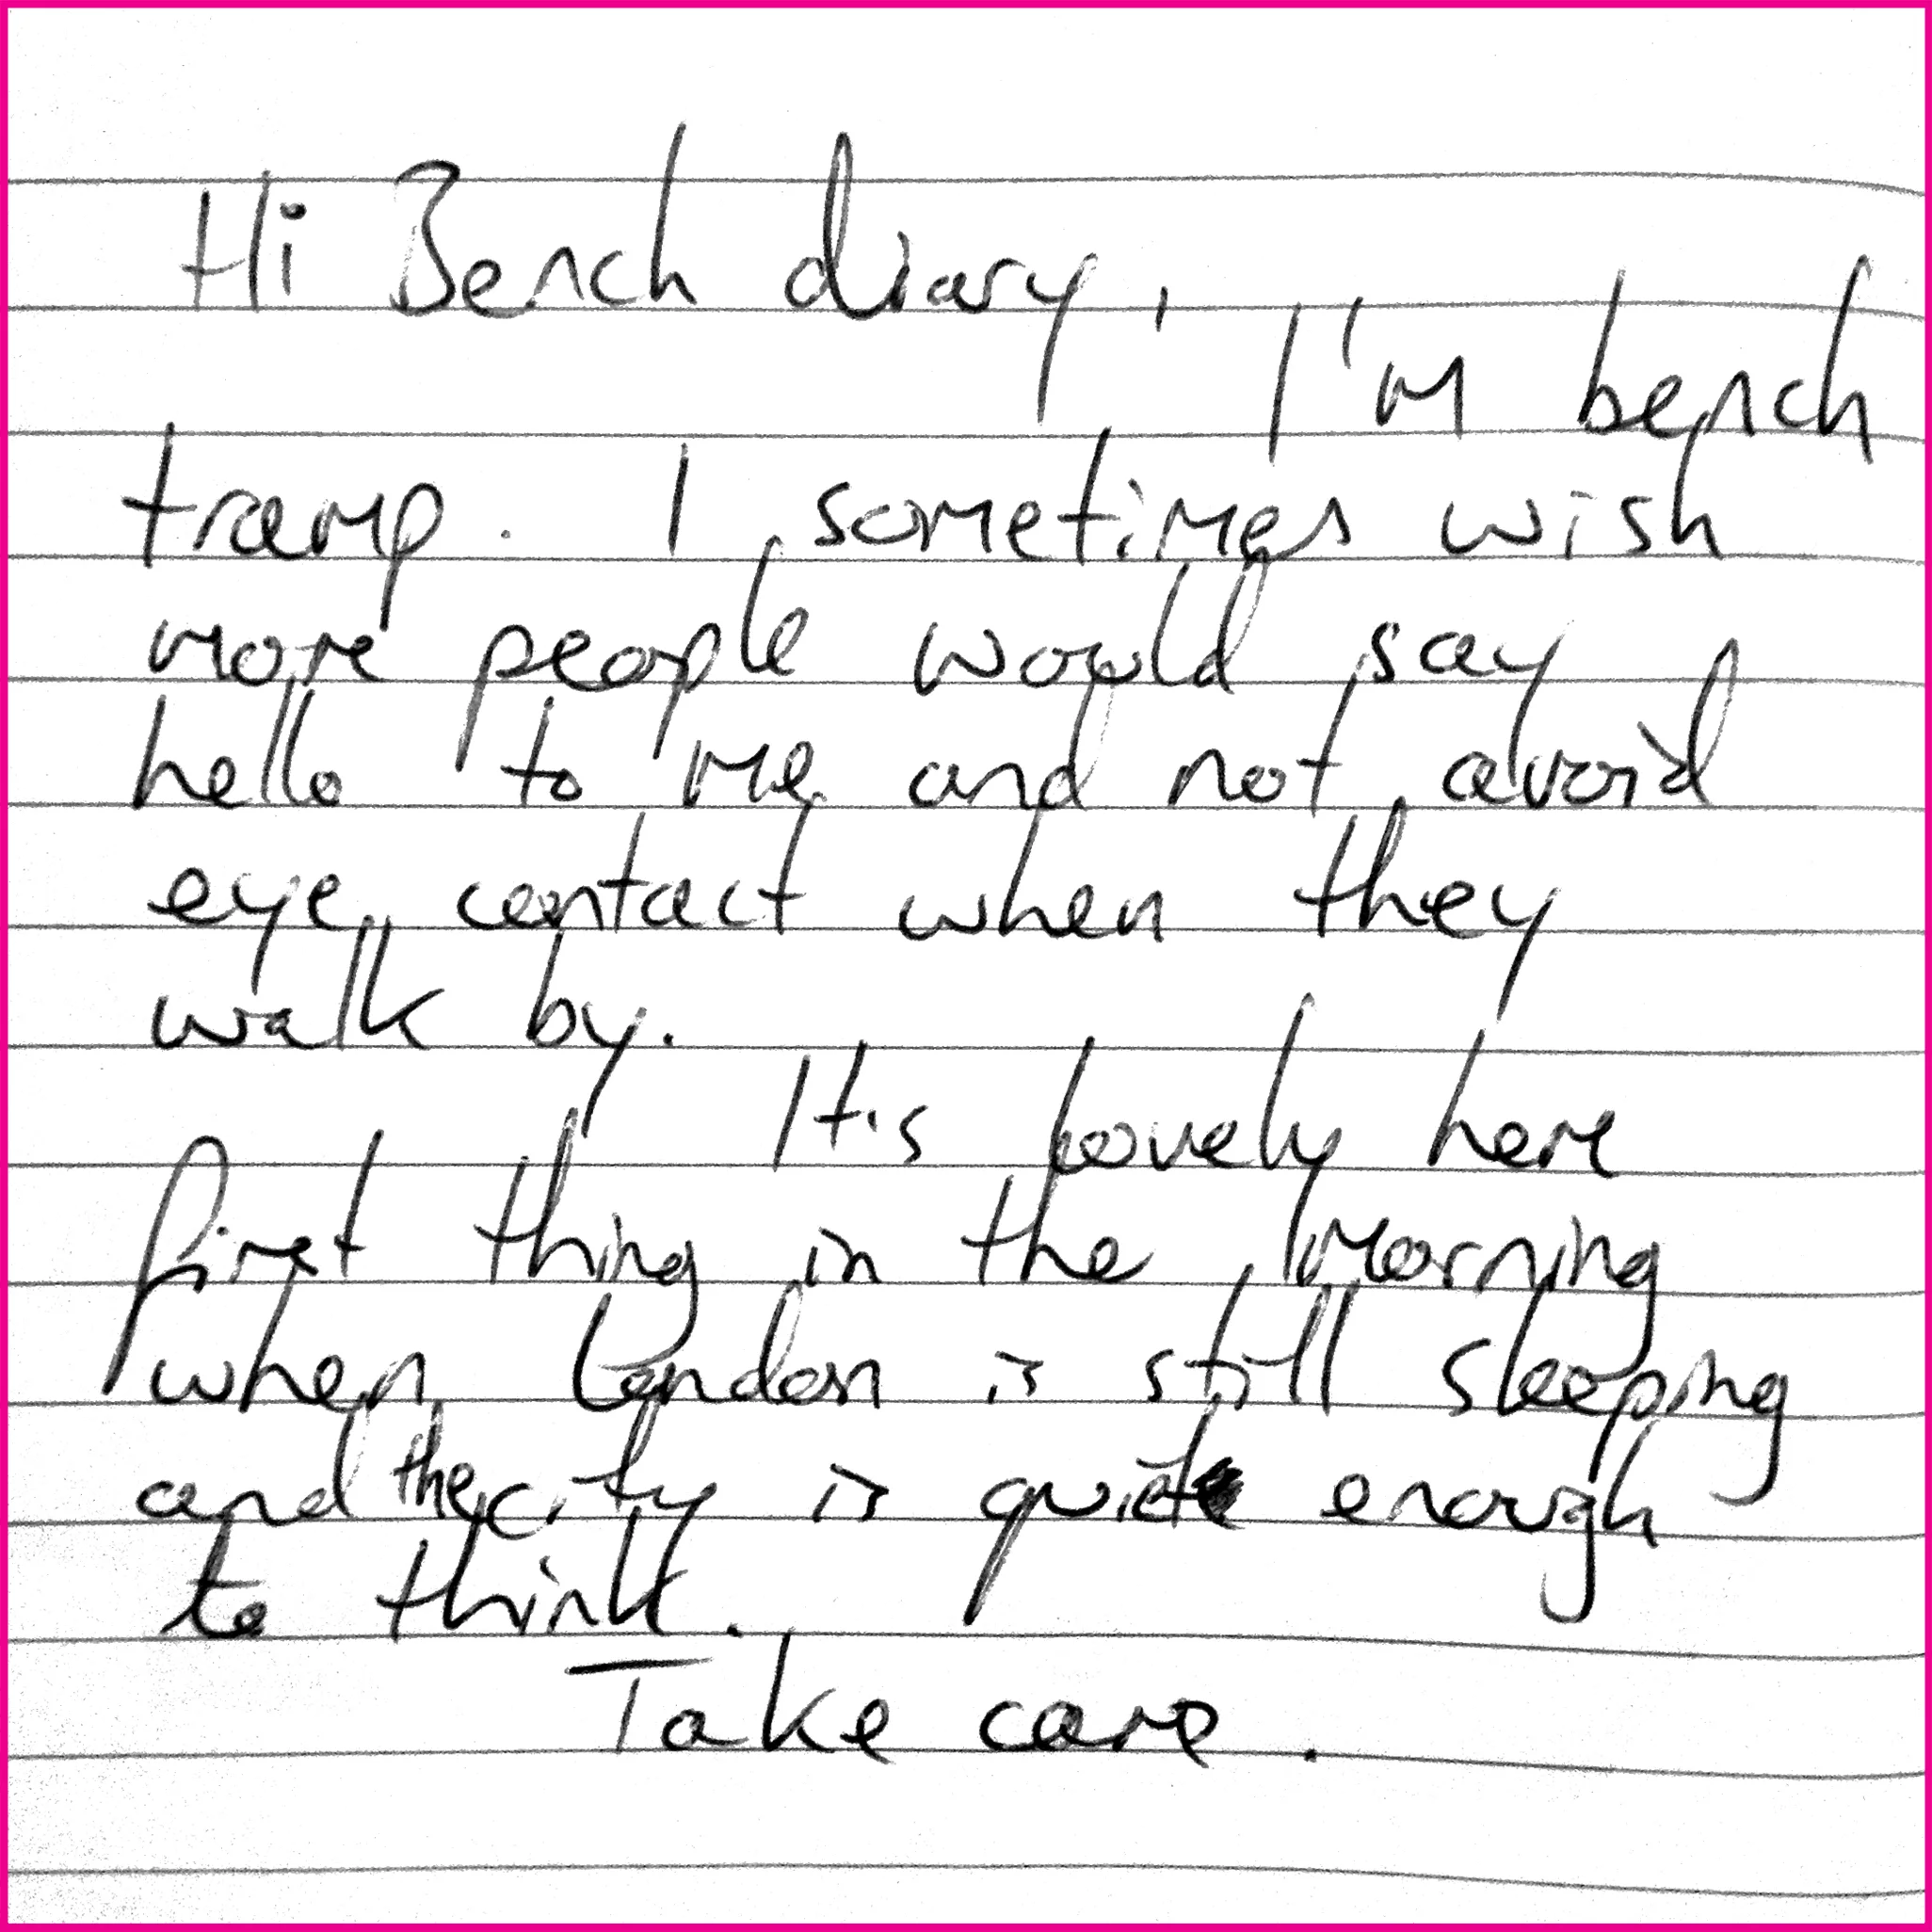 Hi Bench diary,
I'm bench
tramp. I sometimes wish
more people would say
hello to me and not avoid
eye contact when they
walk by.
It's lovely here
first thing in the morning
when London is still sleeping
and the city is quiet enough
to think.
Take care.